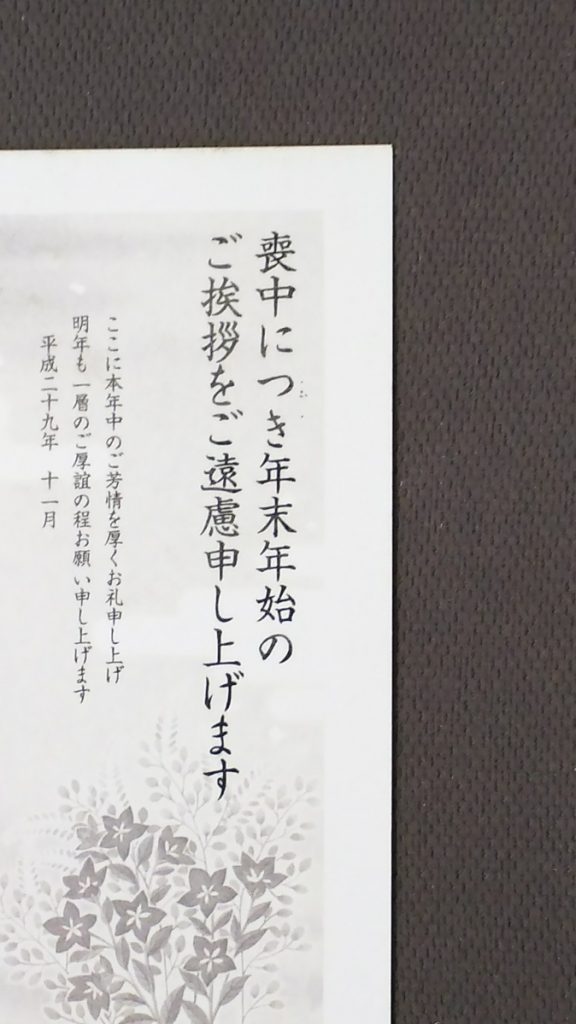 喪中につき年末年始の
ご挨拶をご遠慮申し上げます
ここに本年中のご芳情を厚くお礼申し上げ
明年も一層のご厚誼の程お願い申し上げます
平成二十九年 十一月